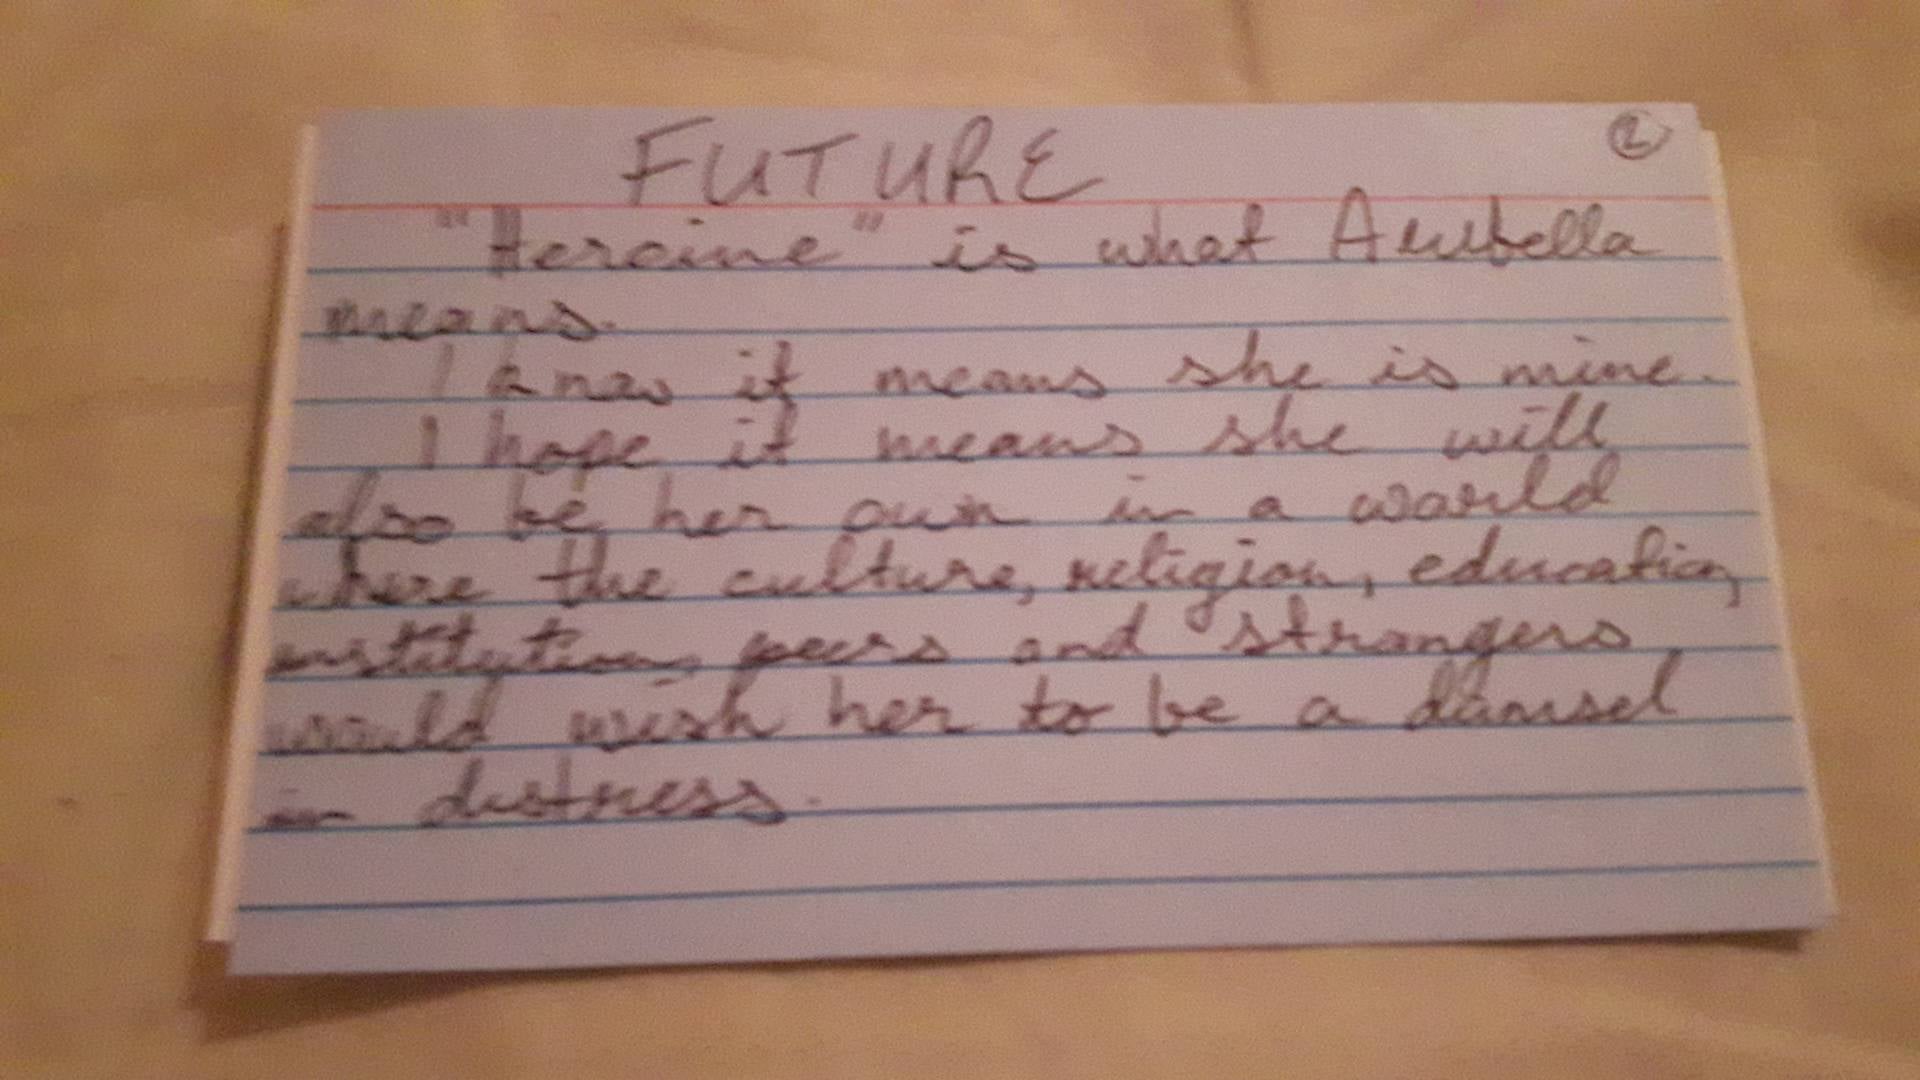 FUTURE
2
"Heroine" is what Arubella
means.
I know it means she is mine.
I hope it means she will
also be her own in a world
where the culture, religion, education,
institution, peers and strangers
would wish her to be a damsel
in distress.